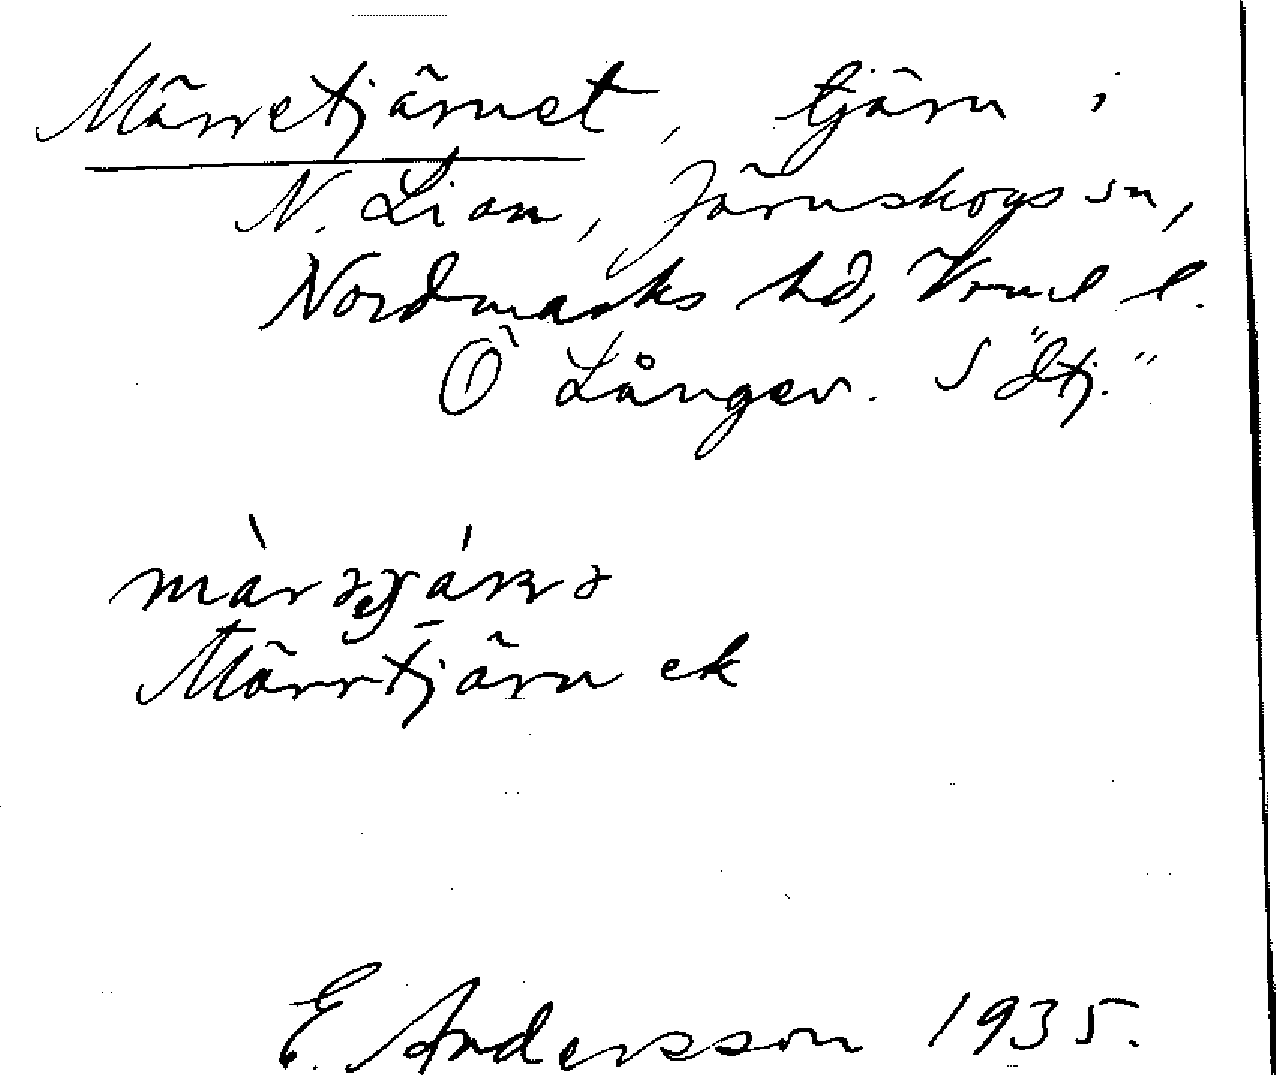 Märretjärnet, tjärn i
N. Lian, Järnskogs sn,
Nordmarks hd, Vrml l.
Ö Långev. S "Ötj."
Märrtjärn ek
E. Andersson 1935.